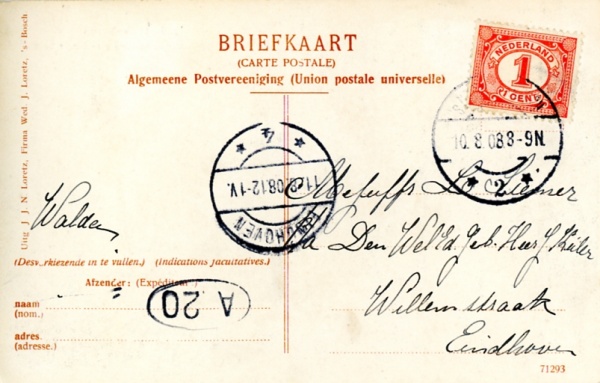 BRIEFKAART
(CARTE POSTALE)
Algemeene Postvereeniging (Union postale universelle)
NEDERLAND
1
1 CENT
10.8.08 8-9N.
* 2 *
* 4 *
11.8.08.12-1V.
EINDHOVEN
Uitg. J. J. N. Loretz, Firma Wed. J. Loretz, 's-Bosch
Walden
Mejuffr
a Den Weled. Geb. Heer J.
Willemstraat
Eindhoven
(Desverkiezende in te vullen.) (Indications facultatives.)
Afzender: (Expéditeur)
A 20
naam
(nom.)
adres
(adresse.)
71293